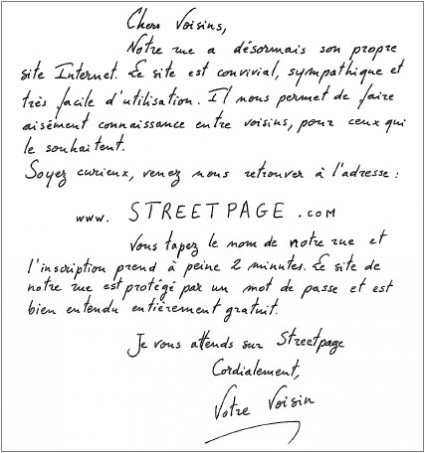 Chers Voisins,
Notre rue a désormais son propre
site Internet. Le site est convivial, sympathique et
très facile d'utilisation. Il nous permet de faire
aisément connaissance entre voisins, pour ceux qui
le souhaitent.
Soyez curieux, venez nous retrouver à l'adresse :
www. STREETPAGE .com
Vous tapez le nom de notre rue et
l'inscription prend à peine 2 minutes. Le site de
notre rue est protégé par un mot de passe et est
bien entendu entièrement gratuit.
Je vous attends sur Streetpage
Cordialement,
Votre Voisin